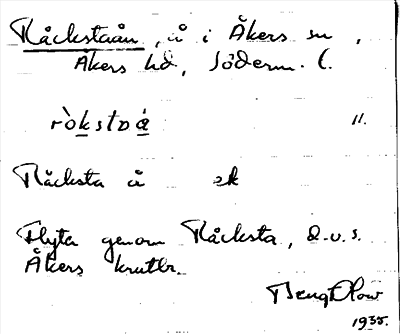 Råckstaån, å i Åkers sn,
Åkers hd, Söderm. l.
ròkstɒá̱ 11.
Råcksta å ek
Flyta genom Råcksta, d.v.s.
Åkers krutbr.
Bengt Olow
1935.